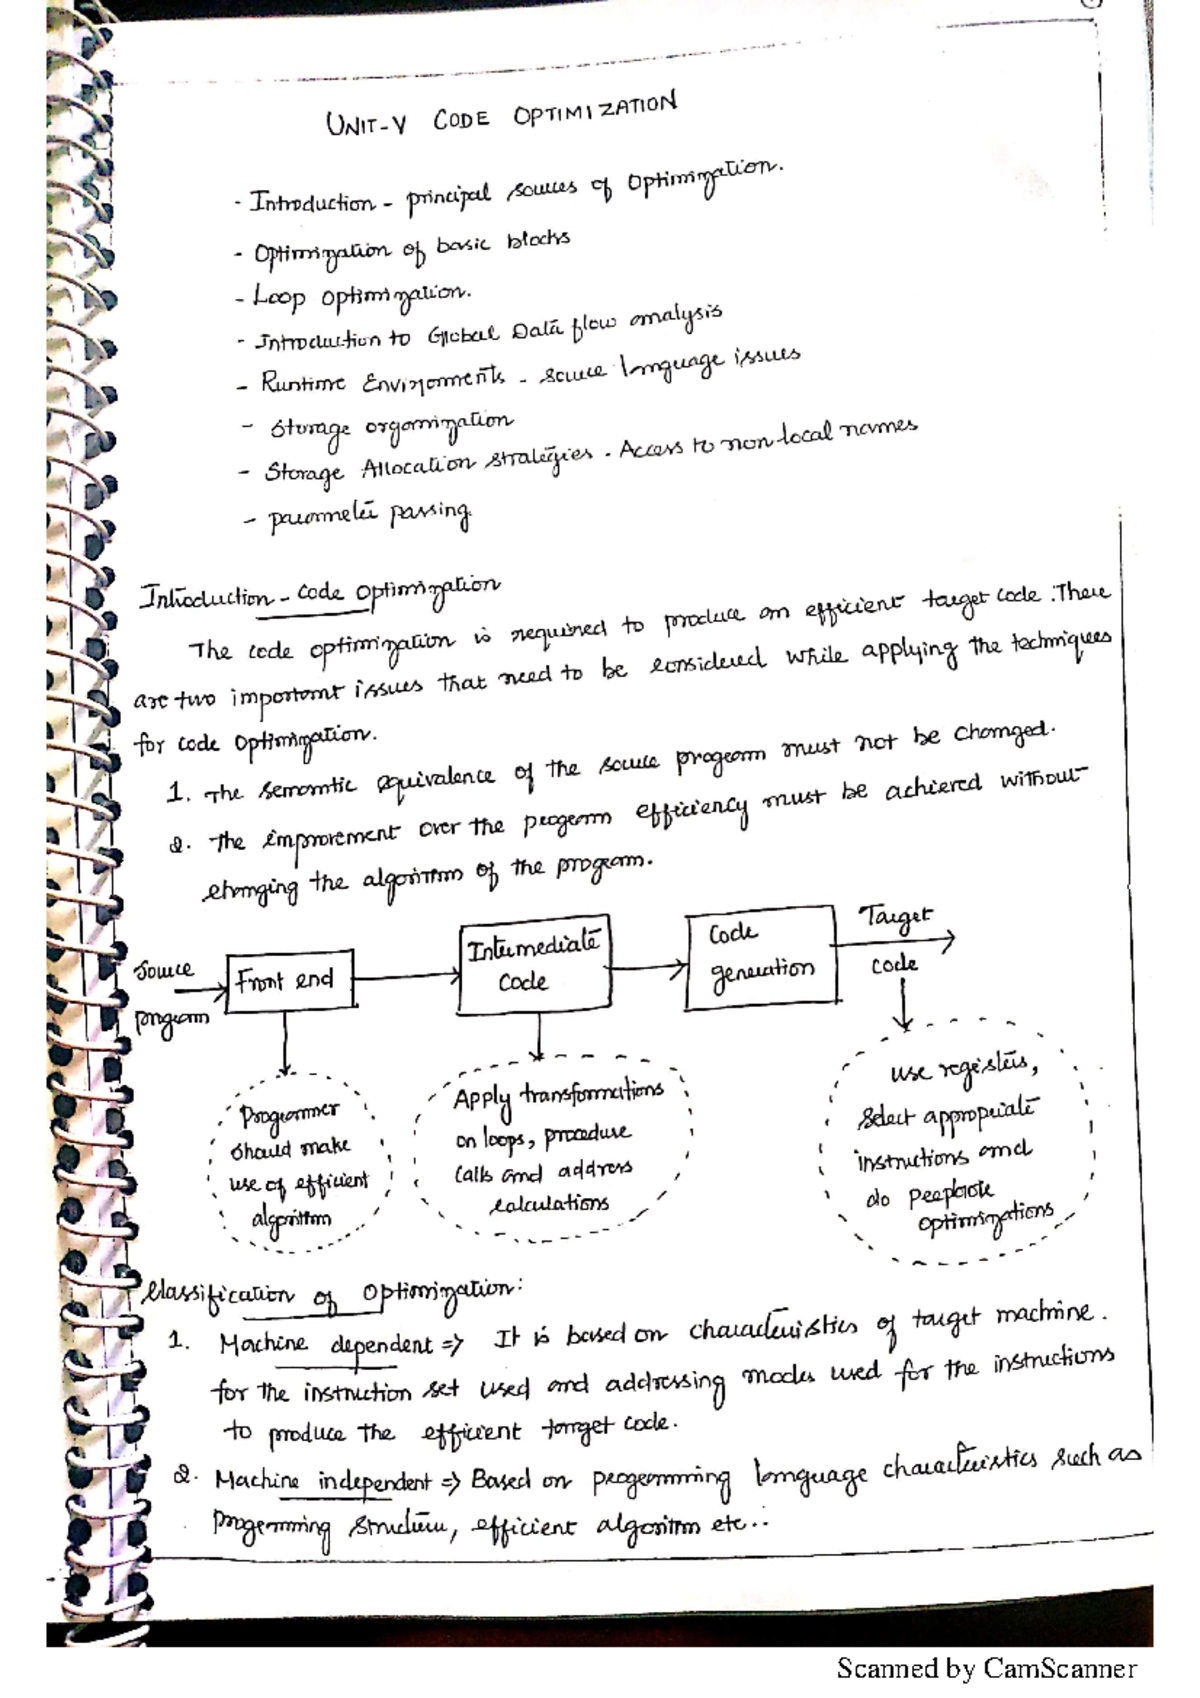 UNIT-V CODE OPTIMIZATION
- Introduction - principal sources of optimization.
- Optimization of basic blocks
- Loop optimization.
- Introduction to Global Data flow analysis
- Runtime Environments - source language issues
- Storage organization
- Storage Allocation strategies - Access to non local names
- parameter passing.
Introduction - Code Optimization
The code optimization is required to produce an efficient target code. There
are two important issues that need to be considered while applying the techniques
for code optimization.
1. The semantic equivalence of the source program must not be changed.
2. The improvement over the program efficiency must be achieved without
changing the algorithm of the program.
Source
program
Front end
Intermediate
Code
Code
generation
Target
code
Programmer
should make
use of efficient
algorithm
Apply transformations
on loops, procedure
calls and address
calculations
use registers,
select appropriate
instructions and
do peephole
optimizations
Classification of Optimization:
1. Machine dependent => It is based on characteristics of target machine.
for the instruction set used and addressing modes used for the instructions
to produce the efficient target code.
2. Machine independent => Based on programming language characteristics such as
programming structure, efficient algorithm etc...
Scanned by CamScanner